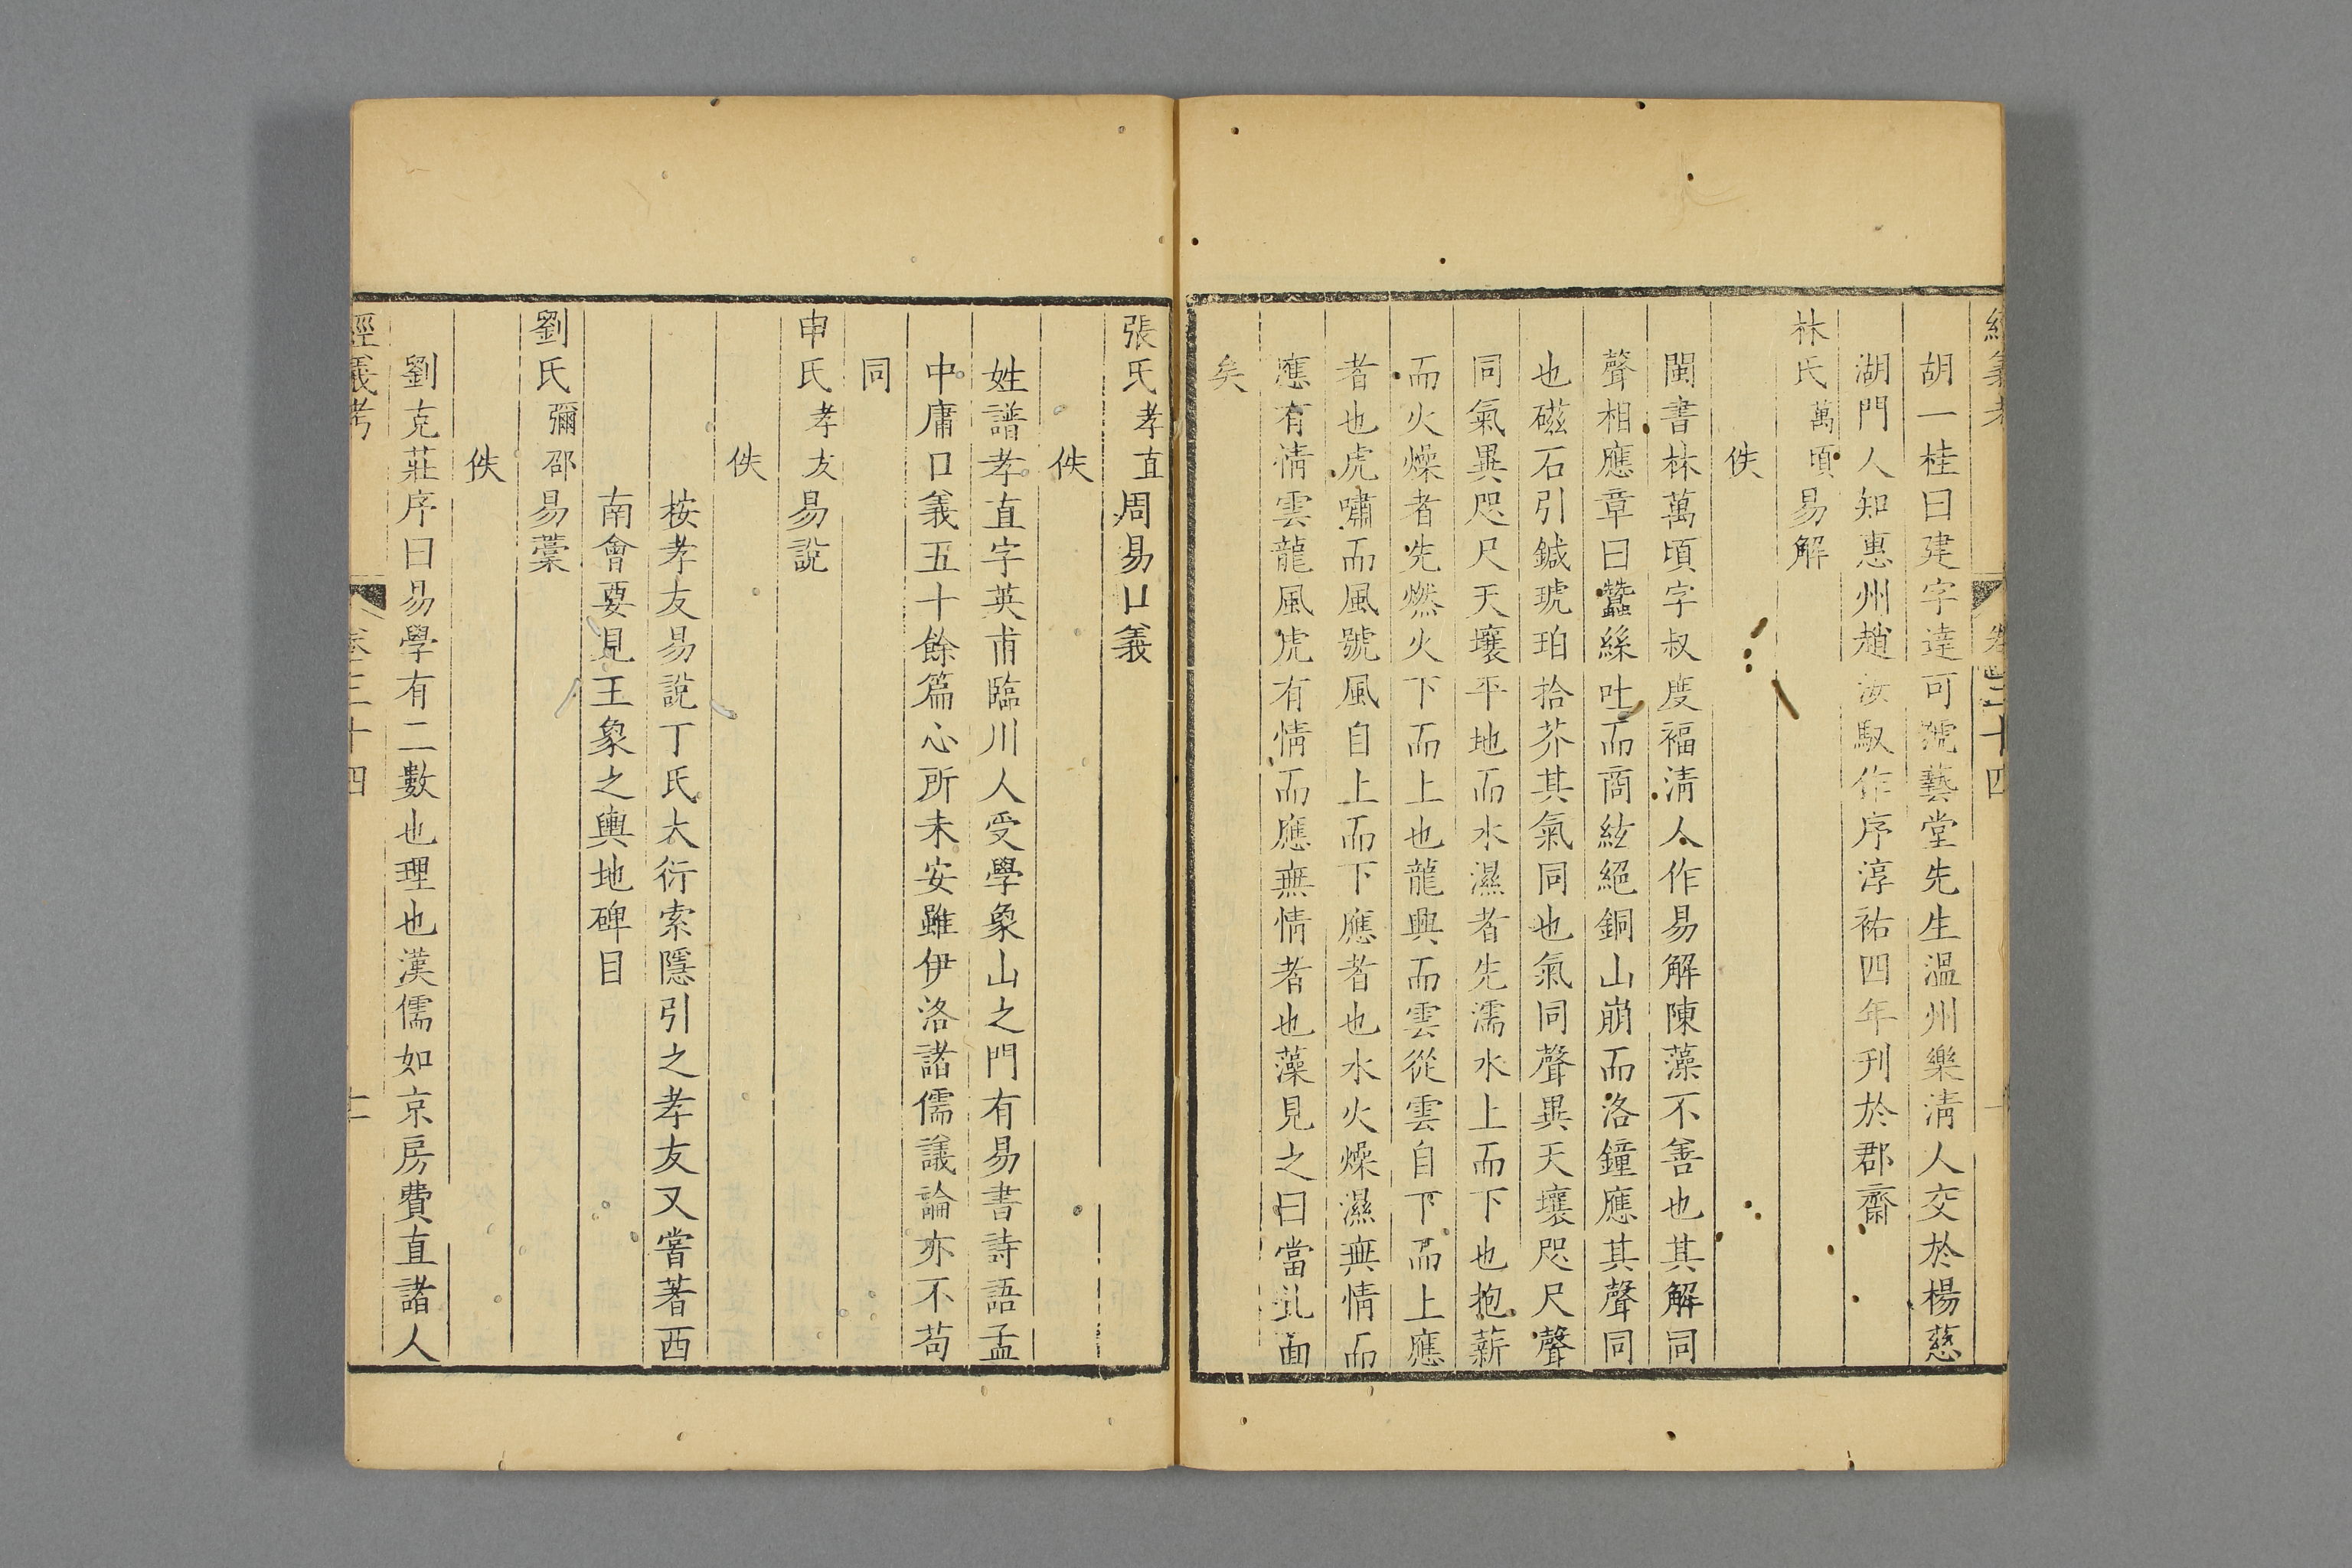 經義考 卷三十四 十
胡一桂曰建字達可號藝堂先生溫州樂清人交於楊慈
湖門人知惠州趙汝馭作序淳祐四年刊於郡齋
林氏萬頃易解
佚
閩書林萬頃字叔度福清人作易解陳藻不善也其解同
聲相應章曰蠶絲吐而商絃絕銅山崩而洛鐘應其聲同
也磁石引鍼琥珀拾芥其氣同也氣同聲異天壤咫尺聲
同氣異咫尺天壤平地而水濕者先濡水上而下也抱薪
而火燥者先燃火下而上也龍興而雲從雲自下而上應
者也虎嘯而風號風自上而下應者也水火燥濕無情而
應有情雲龍風虎有情而應無情者也藻見之曰當北面
矣
張氏孝直周易口義
佚
姓譜孝直字英甫臨川人受學象山之門有易書詩語孟
中庸口義五十餘篇心所未安雖伊洛諸儒議論亦不苟
同
申氏孝友易說
佚
按孝友易說丁氏大衍索隱引之孝友又嘗著西
南會要見王象之輿地碑目
劉氏彌邵易藁
佚
劉克莊序曰易學有二數也理也漢儒如京房費直諸人
經義考 卷三十四 十一